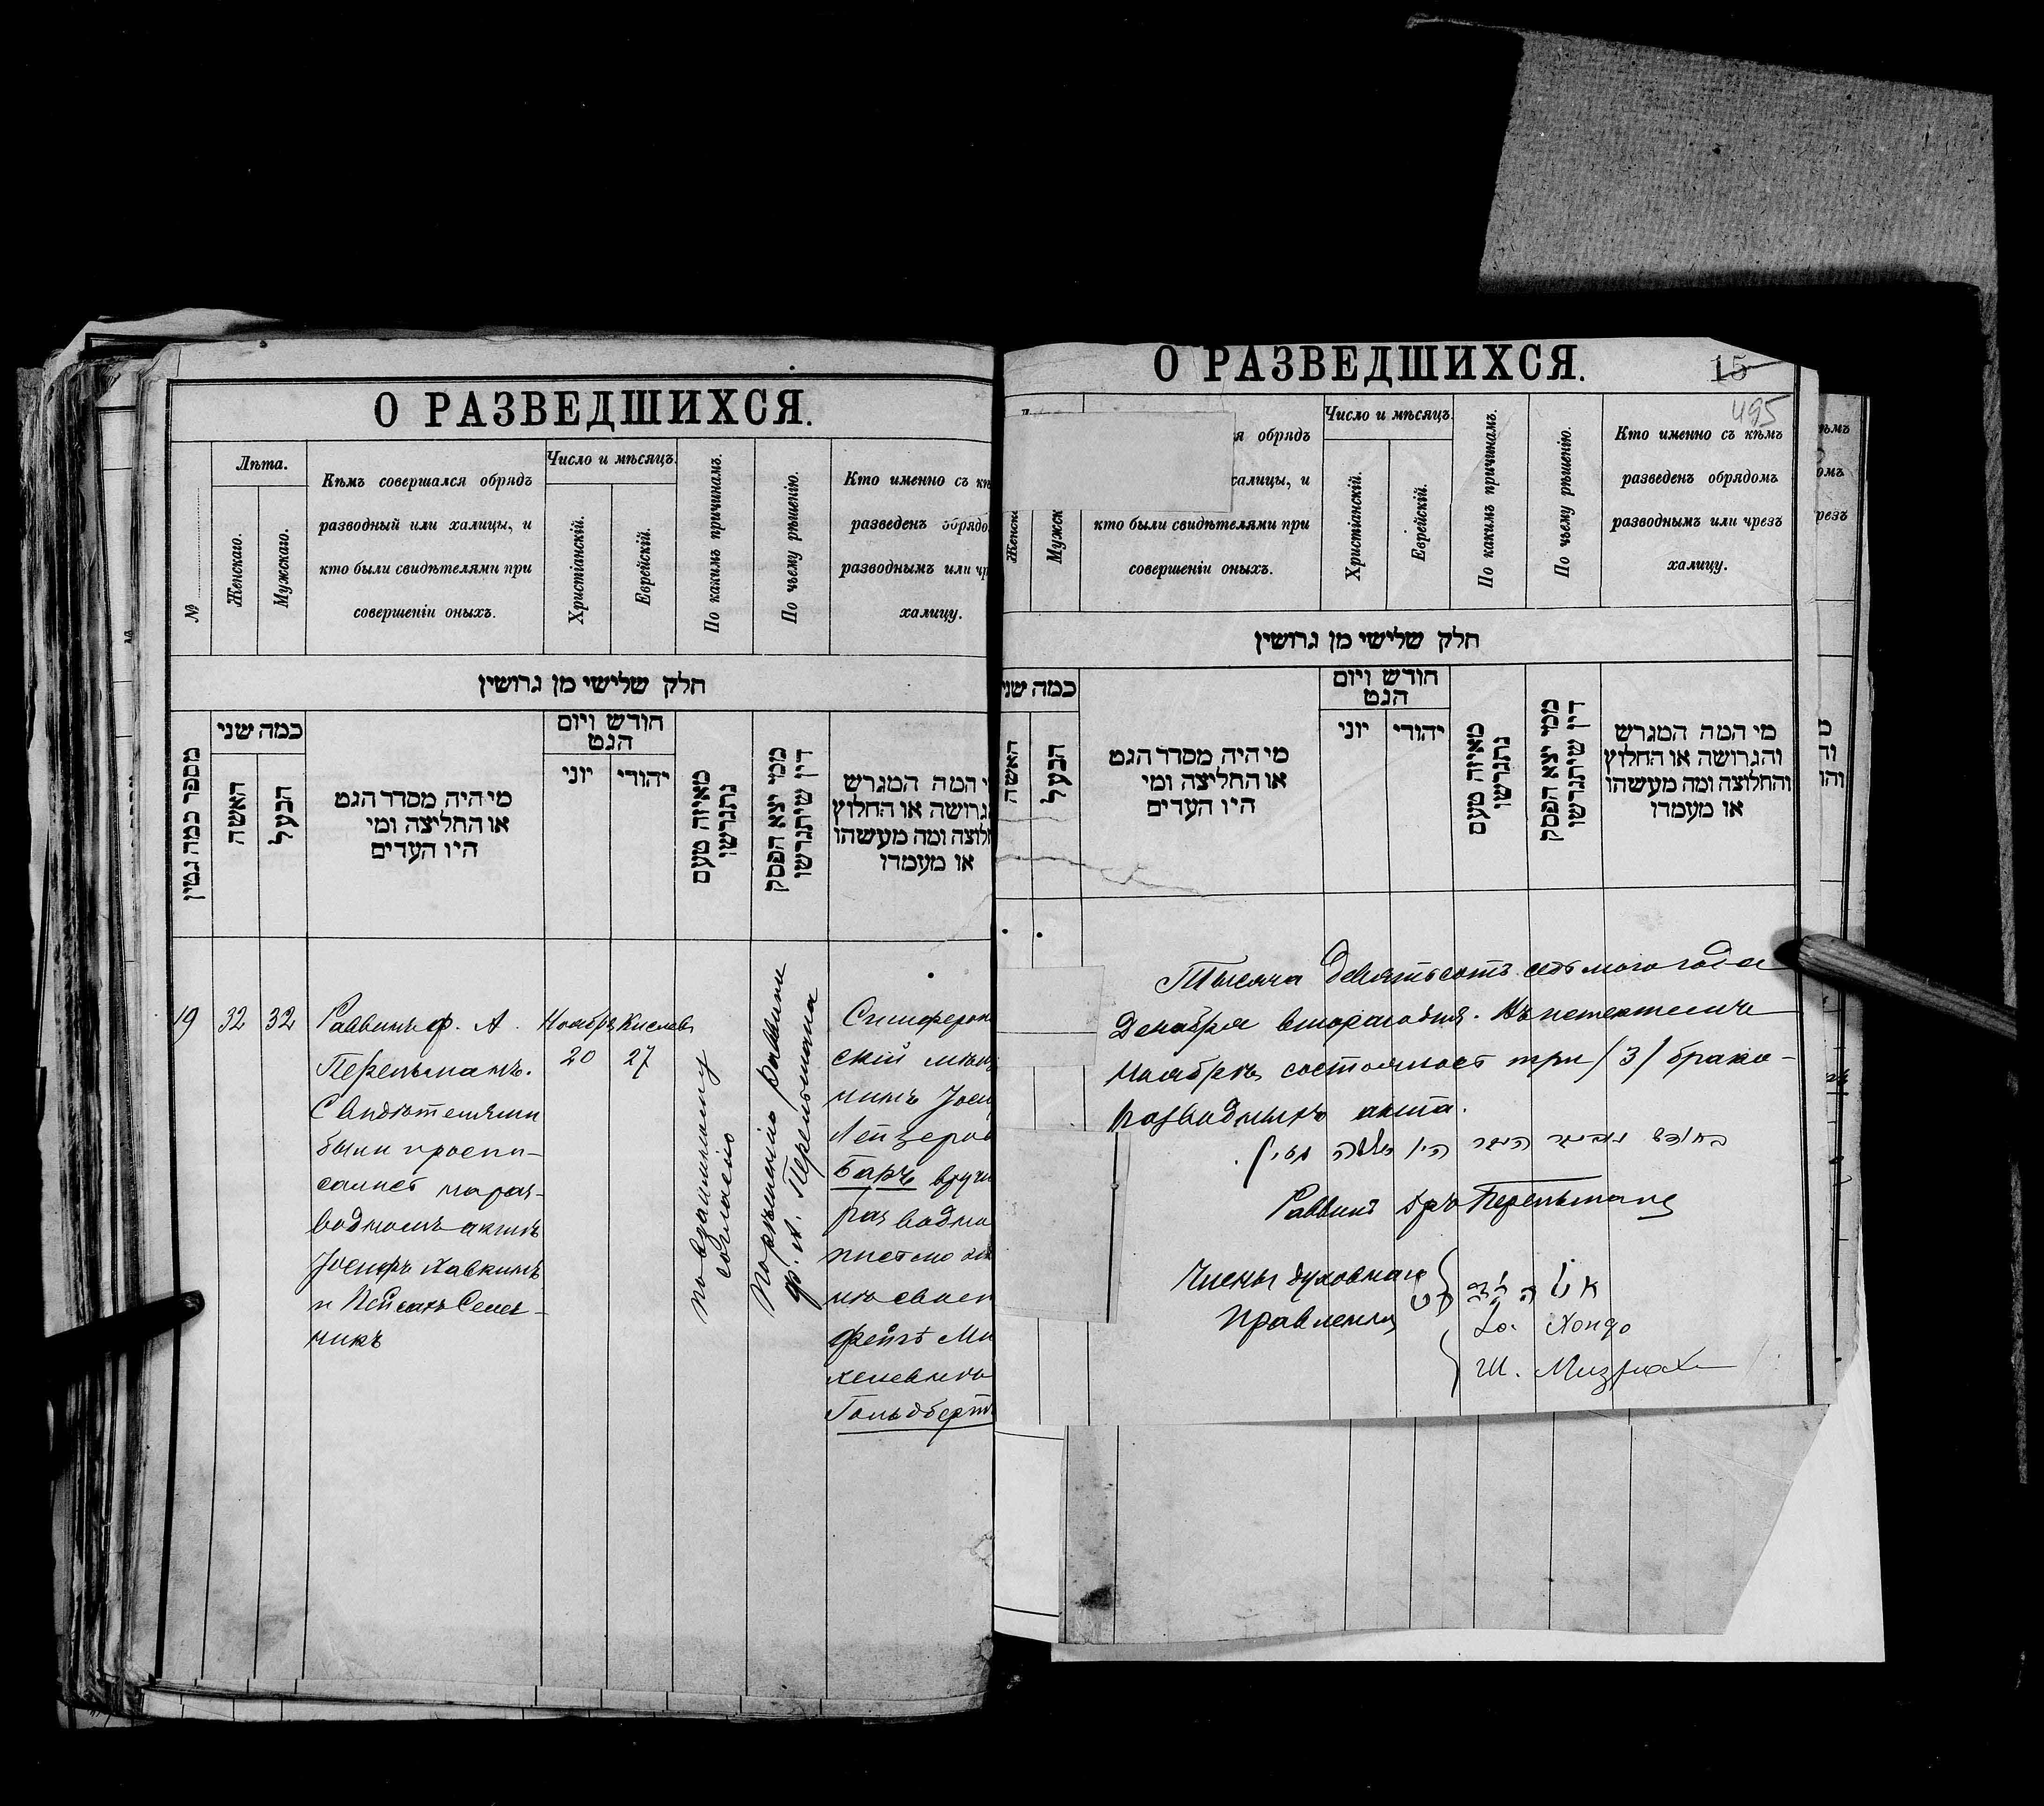 О РАЗВЕДШИХСЯ.
№
Лѣта.
Женскаго.
Мужскаго.
Кѣмъ совершался обрядъ
разводный или халицы, и
кто были свидѣтелями при
совершеніи оныхъ.
Число и мѣсяцъ.
Христіанскій.
Еврейскій.
По какимъ причинамъ.
По чьему рѣшенію.
Кто именно съ
разведенъ обрядо
разводнымъ или
халицу.
חלק שלישי מן גרושין
מספר כמה גטין
כמה שני
האשה
הבעל
מי היה מסדר הגט
או החליצה ומי
היו העדים
חודש ויום
הגט
יוני
יהודי
מאיזה טעם
נתגרשו
ממי יצא הפסק
דין שיתגרשו
המה המגרש
גרושה או החלוץ
לוצה ומה מעשהו
או מעמדו
19
32
32
Раввинъ ф. А.
Перельманъ.
Свидѣтелями
были
водномъ актѣ
Іосифъ Хавкинъ
и Пейсахъ
чикъ
Ноября
20
Кислев
27
по взаимному
согласію
По рѣшенію Раввина
ф. А. Перельмана
Симфероп
скій мѣщ
нинъ Іоси
Лейзеров
Баръ вручи
разводно
письмо
Фейгѣ Ми
хелевнѣ
Гольдберг
О РАЗВЕДШИХСЯ.
15
495
я обрядъ
халицы, и
кто были свидѣтелями при
совершеніи оныхъ.
Женска
Мужск
Число и мѣсяцъ.
Христіанскій.
Еврейскій.
По какимъ причинамъ.
По чьему рѣшенію.
Кто именно съ кѣмъ
разведенъ обрядомъ
разводнымъ или чрезъ
халицу.
חלק שלישי מן גרושין
כמה שני
האשה
הבעל
מי היה מסדר הגט
או החליצה ומי
היו העדים
חודש ויום
הגט
יוני
יהודי
מאיזה טעם
נתגרשו
ממי יצא הפסק
דין שיתגרשו
מי המה המגרש
והגרושה או החלוץ
והחלוצה ומה מעשהו
או מעמדו
Тысяча девятьсотъ седьмого года
Декабря второго дня. Въ истекшемъ
Ноябрѣ состоялось три /3/ брако-
разводныхъ акта.
בחודש נאיאבר היו שלשה גטין.
Раввинъ ф. А. Перельманъ
Члены духовнаго
Правленія
Хондо
Ш. Мизрахи